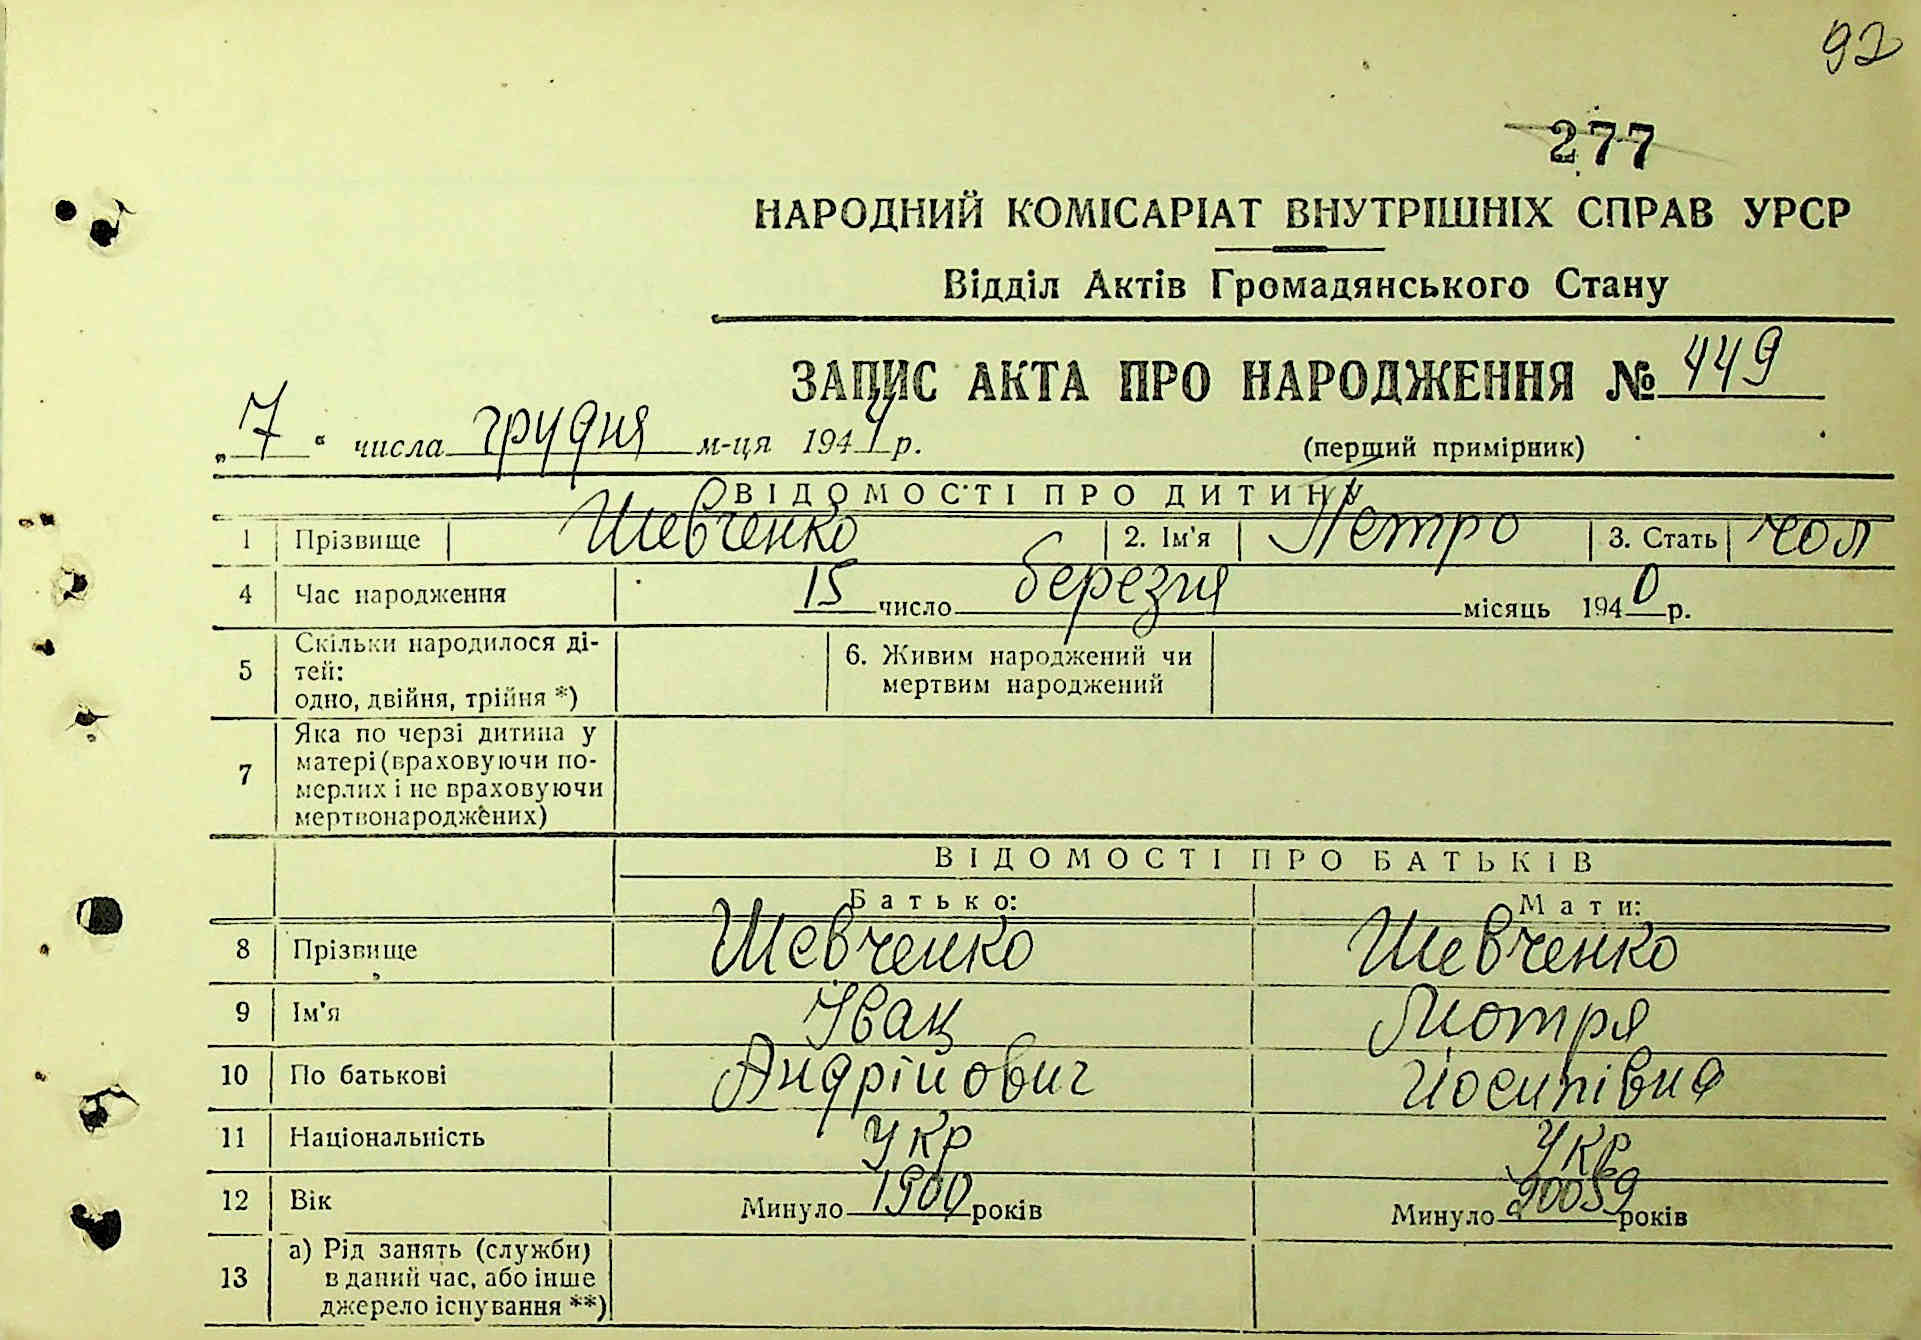 92
277
НАРОДНИЙ КОМІСАРІАТ ВНУТРІШНІХ СПРАВ УРСР
Відділ Актів Громадянського Стану
ЗАПИС АКТА ПРО НАРОДЖЕННЯ № 449
„7“ числа грудня м-ця 1944 р. (перший примірник)
ВІДОМОСТІ ПРО ДИТИНУ
1 Прізвище Шевченко 2. Ім'я Петро 3. Стать чол
4 Час народження 15 число березня місяць 1940 р.
5 Скільки народилося ді-
тей:
одно, двійня, трійня *)
6. Живим народжений чи
мертвим народжений
7 Яка по черзі дитина у
матері (враховуючи по-
мерлих і не враховуючи
мертвонароджених)
ВІДОМОСТІ ПРО БАТЬКІВ
Батько: Мати:
8 Прізвище Шевченко Шевченко
9 Ім'я Іван Мотря
10 По батькові Андрійович Йосипівна
11 Національність укр укр
12 Вік Минуло 1900 років Минуло років
13 а) Рід занять (служби)
в даний час, або інше
джерело існування **)